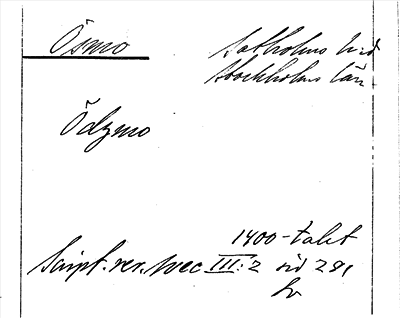 Ösmo
Sotholms hrd
Stockholms län
Ödzmo
1400-talet
Script. rer. svec III:2 sid 291